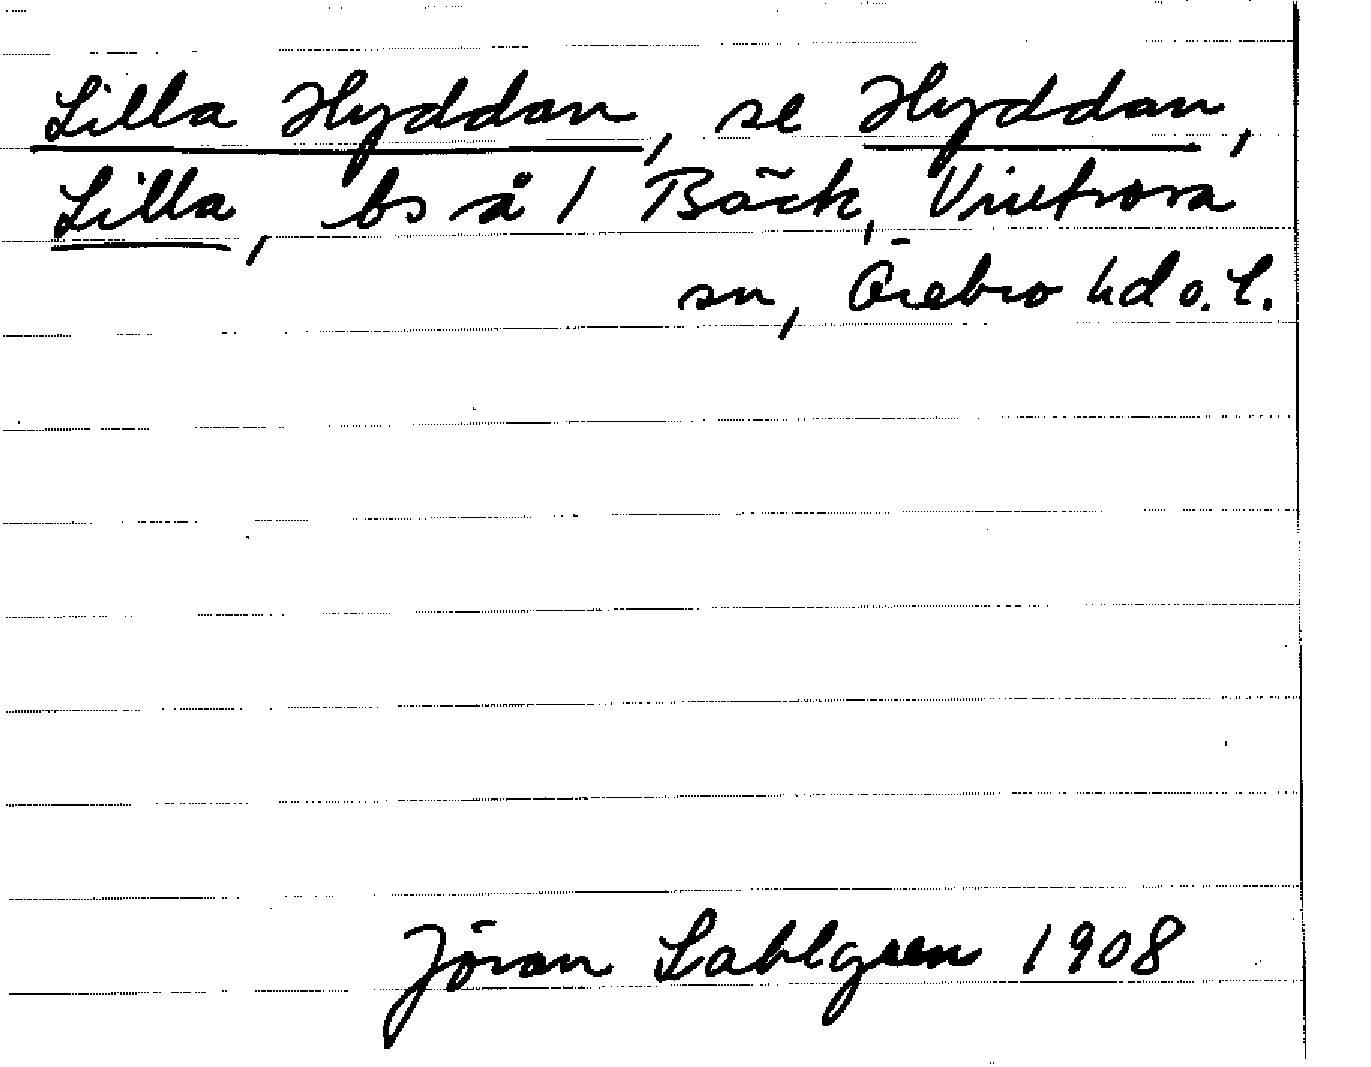 Lilla Hyddan, se Hyddan,
Lilla, bs å 1 Bäck, Vintrosa
sn, Örebro hd o. l.
Jöran Sahlgren 1908